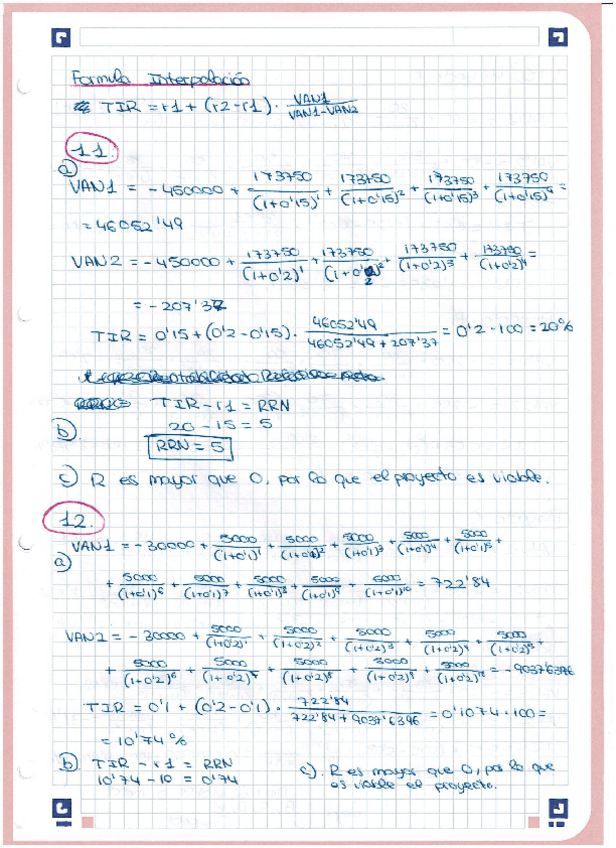 Formula Interpolación
TIR = r1 + (r2-r1) · VAN1/(VAN1-VAN2)
11.
a)
VAN1 = -450000 + 173750/(1+0'15)^1 + 173750/(1+0'15)^2 + 173750/(1+0'15)^3 + 173750/(1+0'15)^4 =
= 46052'49
VAN2 = -450000 + 173750/(1+0'2)^1 + 173750/(1+0'2)^2 + 173750/(1+0'2)^3 + 173750/(1+0'2)^4 =
= -207'37
TIR = 0'15 + (0'2-0'15) · 46052'49/(46052'49+207'37) = 0'2 · 100 = 20%
TIR - r1 = RRN
b)
20 - 15 = 5
RRN = 5
c) R es mayor que 0, por lo que el proyecto es viable.
12.
VAN1 = -30000 + 5000/(1+0'1)^1 + 5000/(1+0'1)^2 + 5000/(1+0'1)^3 + 5000/(1+0'1)^4 + 5000/(1+0'1)^5 +
a)
+ 5000/(1+0'1)^6 + 5000/(1+0'1)^7 + 5000/(1+0'1)^8 + 5000/(1+0'1)^9 + 5000/(1+0'1)^10 = 722'84
VAN2 = -30000 + 5000/(1+0'2)^1 + 5000/(1+0'2)^2 + 5000/(1+0'2)^3 + 5000/(1+0'2)^4 + 5000/(1+0'2)^5 +
+ 5000/(1+0'2)^6 + 5000/(1+0'2)^7 + 5000/(1+0'2)^8 + 5000/(1+0'2)^9 + 5000/(1+0'2)^10 = -9037'6396
TIR = 0'1 + (0'2-0'1) · 722'84/(722'84+9037'6396) = 0'1074 · 100 =
= 10'74%
b) TIR - r1 = RRN
10'74 - 10 = 0'74
c). R es mayor que 0, por lo que
es viable el proyecto.